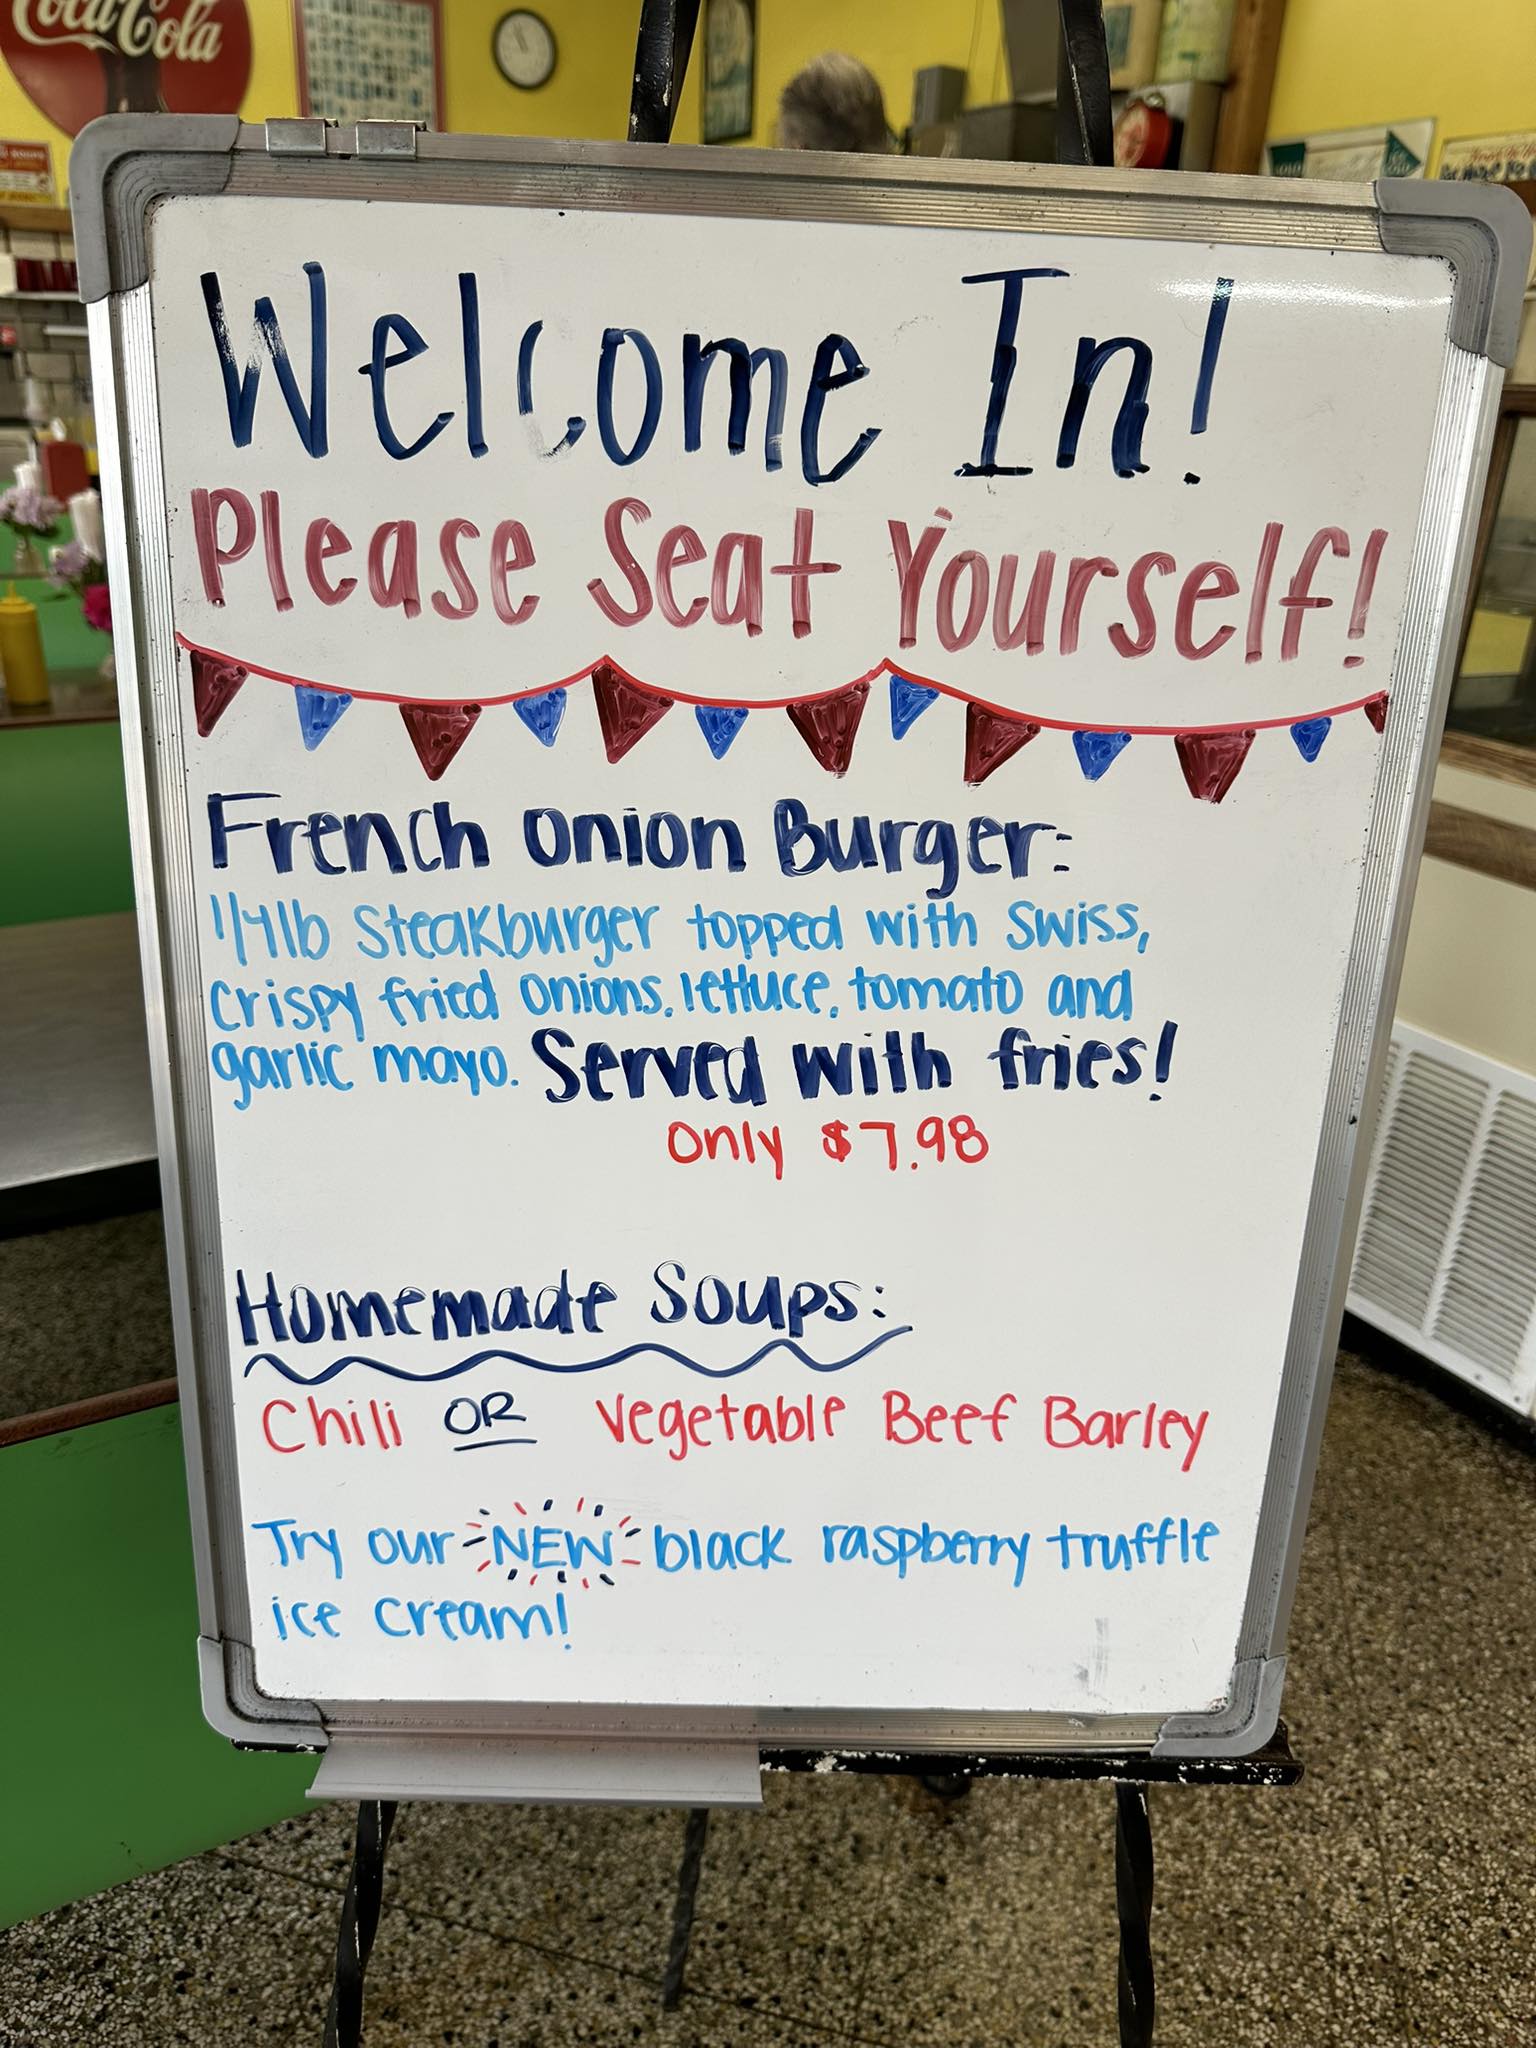 Coca-Cola
Welcome In!
Please Seat Yourself!
French Onion Burger:
1/4lb Steakburger topped with Swiss,
crispy fried onions, lettuce, tomato and
garlic mayo. Served with fries!
Only $7.98
Homemade Soups:
Chili OR Vegetable Beef Barley
Try our NEW black raspberry truffle
ice cream!